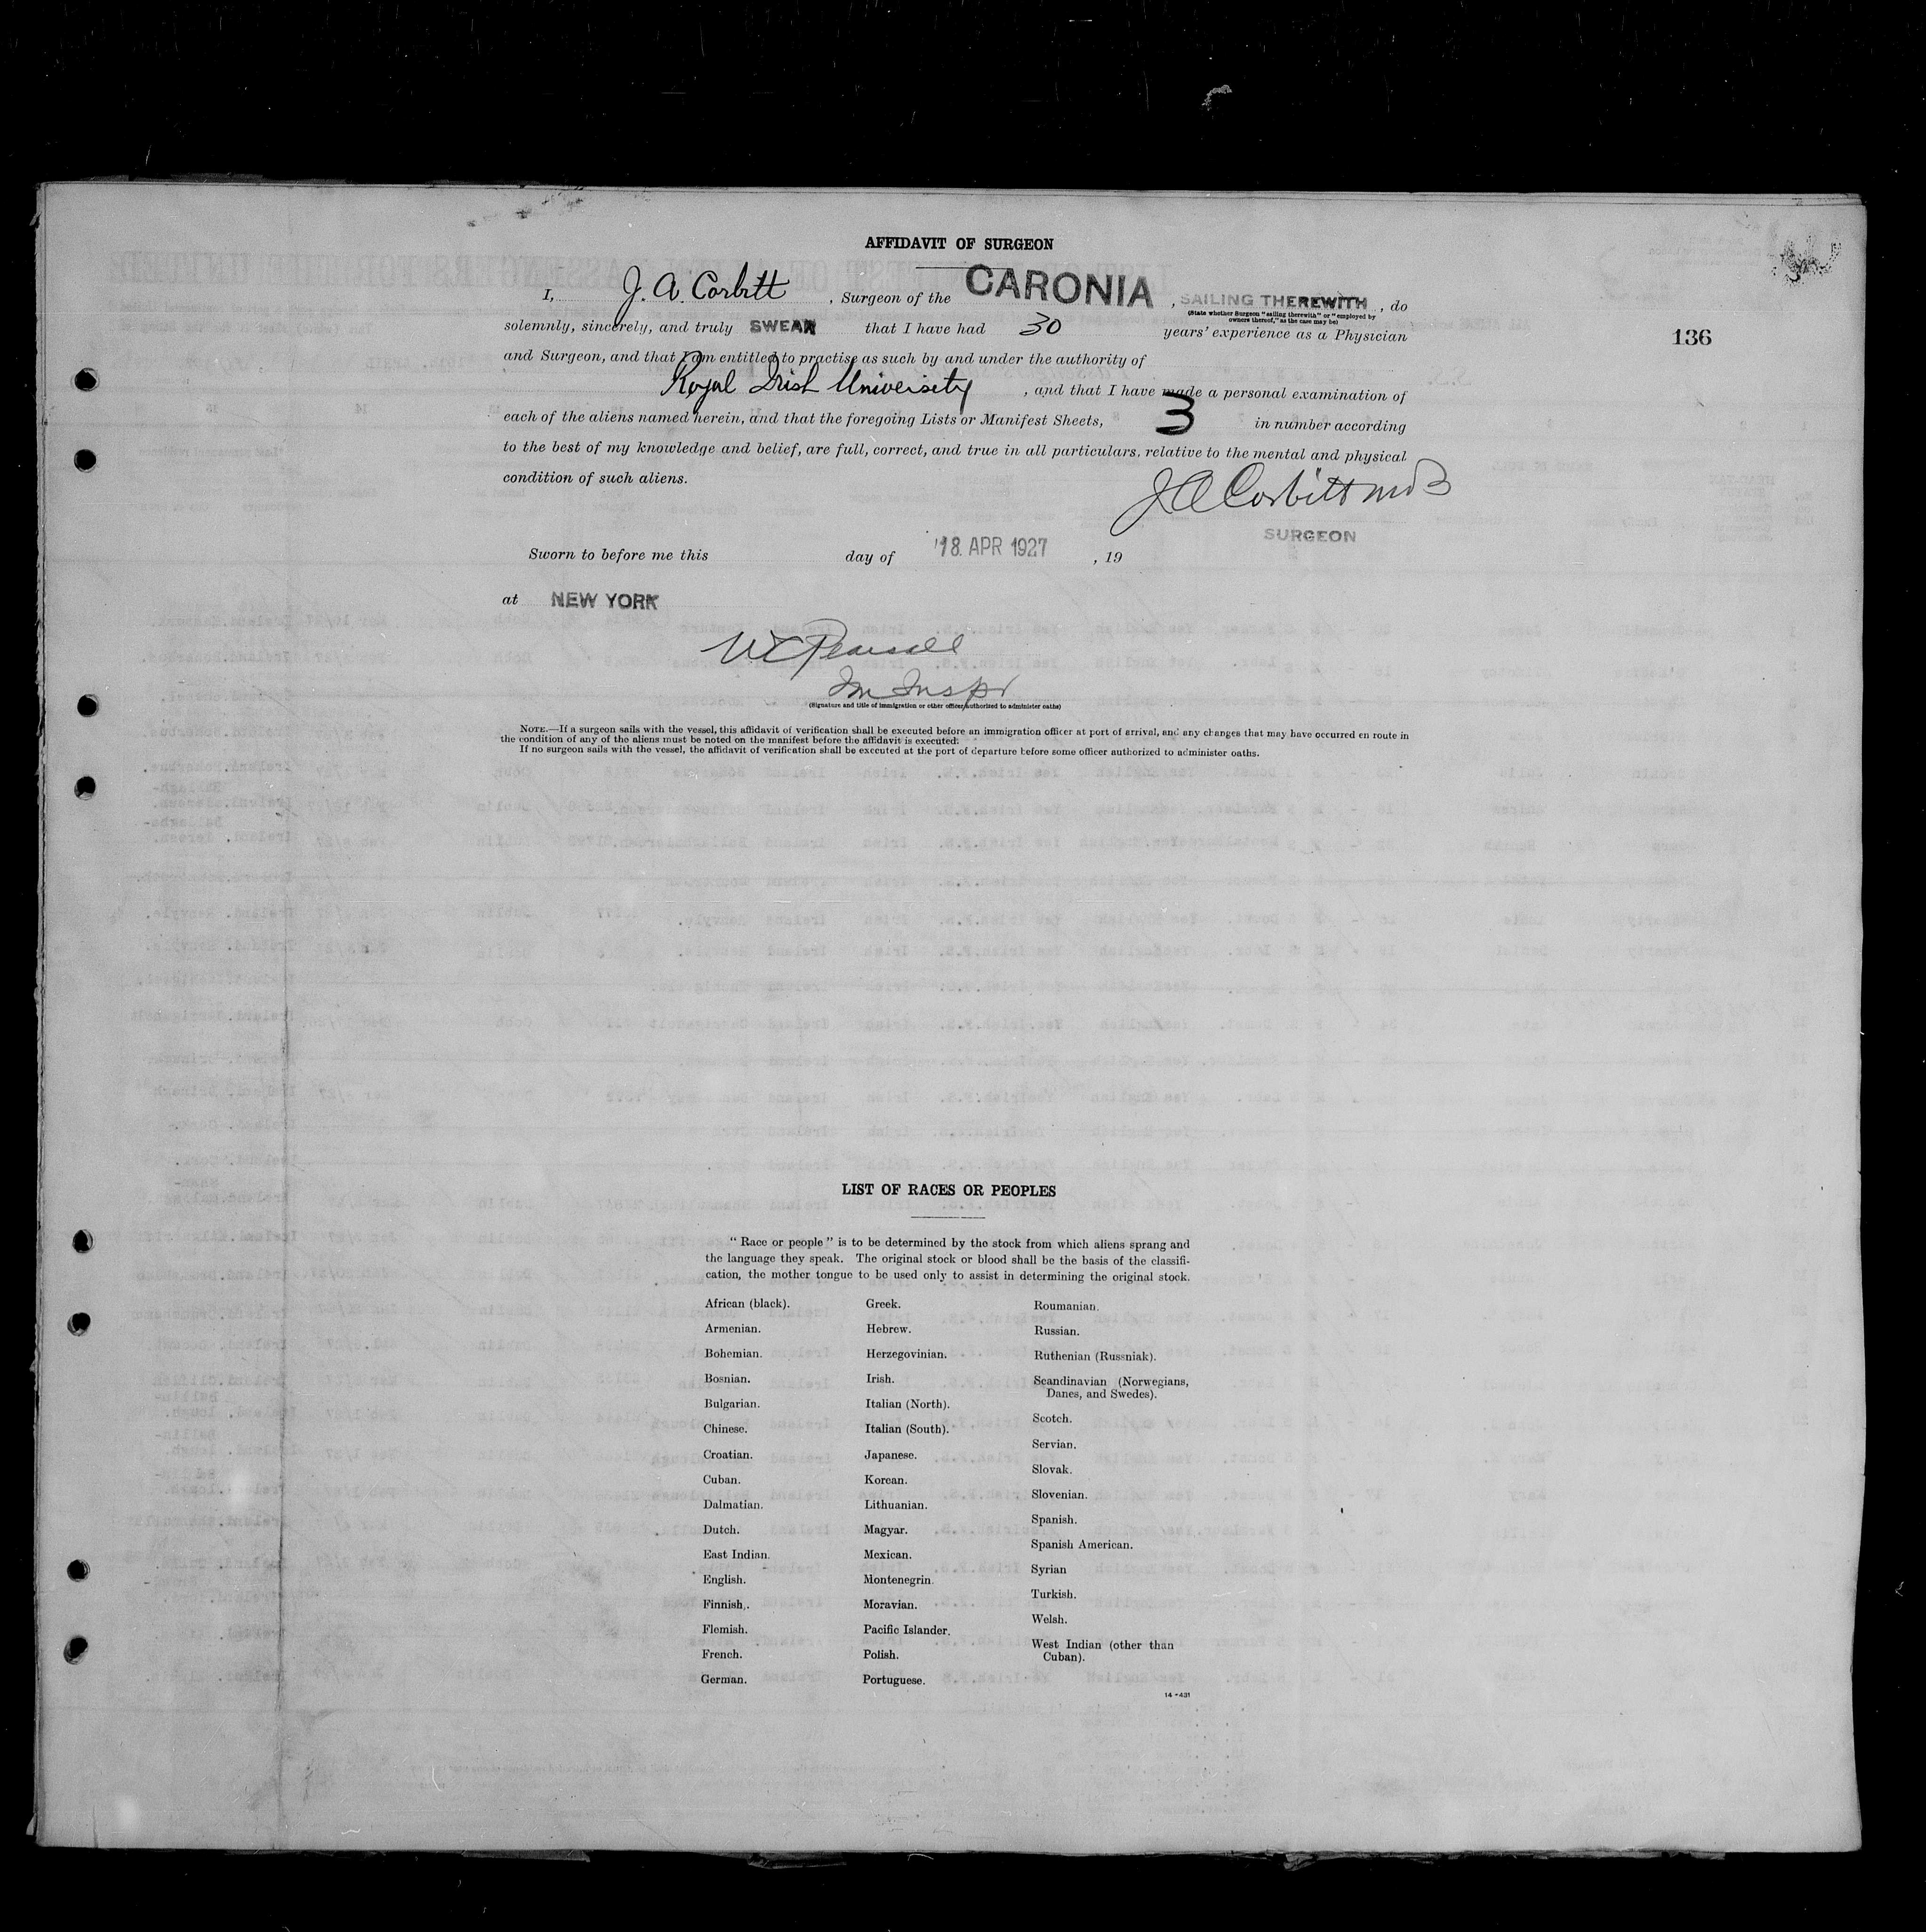 AFFIDAVIT OF SURGEON
I, J. A. Corbitt , Surgeon of the CARONIA , SAILING THEREWITH , do
(State whether Surgeon "sailing therewith" or "employed by
owners thereof," as the case may be)
solemnly, sincerely, and truly SWEAR that I have had 30 years' experience as a Physician
136
and Surgeon, and that I am entitled to practise as such by and under the authority of
Royal Irish University , and that I have made a personal examination of
each of the aliens named herein, and that the foregoing Lists or Manifest Sheets, 3 in number according
to the best of my knowledge and belief, are full, correct, and true in all particulars, relative to the mental and physical
condition of such aliens.
J A Corbitt
SURGEON
Sworn to before me this day of 18. APR 1927 , 19
at NEW YORK
Im Inspr
(Signature and title of immigration or other officer authorized to administer oaths)
NOTE.—If a surgeon sails with the vessel, this affidavit of verification shall be executed before an immigration officer at port of arrival, and any changes that may have occurred en route in
the condition of any of the aliens must be noted on the manifest before the affidavit is executed.
If no surgeon sails with the vessel, the affidavit of verification shall be executed at the port of departure before some officer authorized to administer oaths.
LIST OF RACES OR PEOPLES
"Race or people" is to be determined by the stock from which aliens sprang and
the language they speak. The original stock or blood shall be the basis of the classifi-
cation, the mother tongue to be used only to assist in determining the original stock.
African (black).
Armenian.
Bohemian.
Bosnian.
Bulgarian.
Chinese.
Croatian.
Cuban.
Dalmatian.
Dutch.
East Indian.
English.
Finnish.
Flemish.
French.
German.
Greek.
Hebrew.
Herzegovinian.
Irish.
Italian (North).
Italian (South).
Japanese.
Korean.
Lithuanian.
Magyar.
Mexican.
Montenegrin.
Moravian.
Pacific Islander.
Polish.
Portuguese.
Roumanian.
Russian.
Ruthenian (Russniak).
Scandinavian (Norwegians,
Danes, and Swedes).
Scotch.
Servian.
Slovak.
Slovenian.
Spanish.
Spanish American.
Syrian
Turkish.
Welsh.
West Indian (other than
Cuban).
14-431